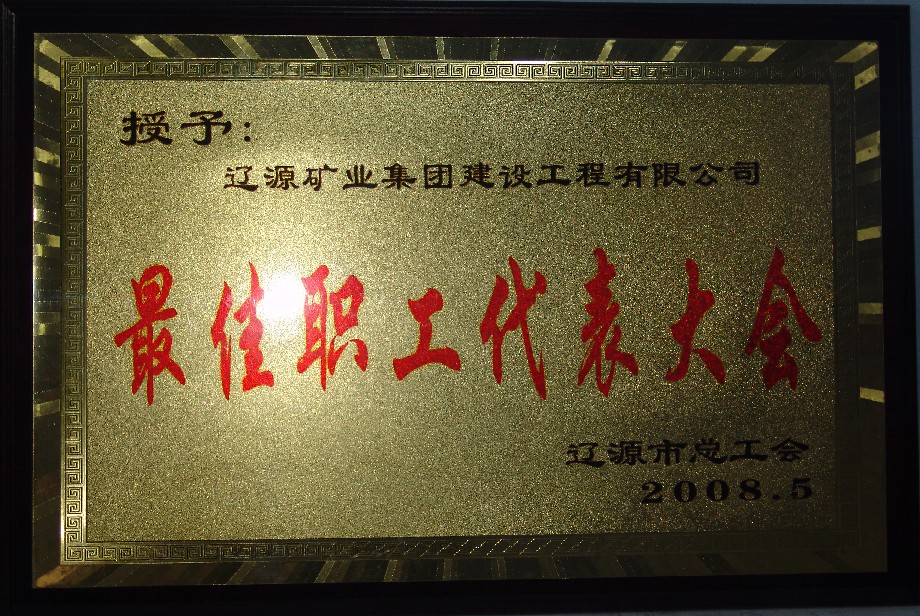 授予:
辽源矿业集团建设工程有限公司
最佳职工代表大会
辽源市总工会
2008.5